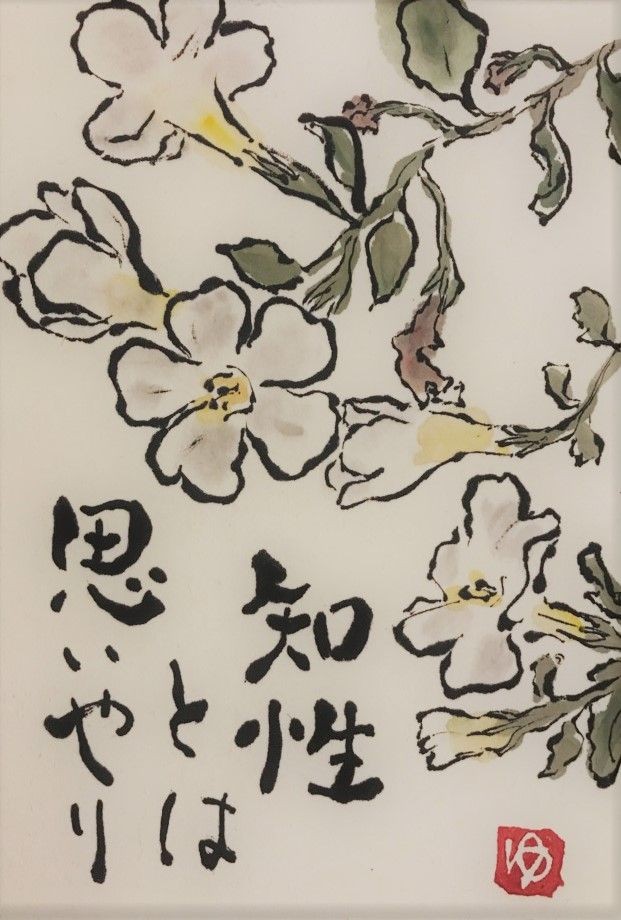 知性
とは
思いやり
ゆ